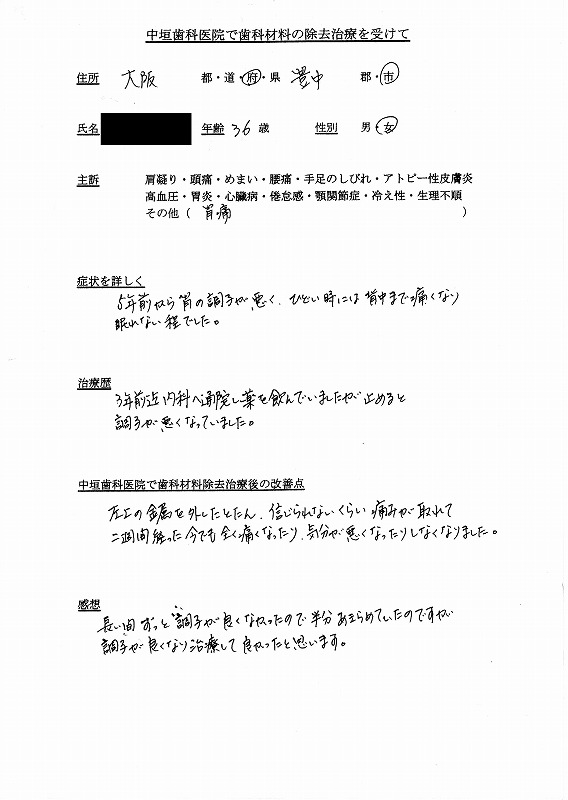 中垣歯科医院で歯科材料の除去治療を受けて
住所 大阪 都・道・府・県 豊中 郡・市
氏名 年齢 36 歳 性別 男・女
主訴 肩凝り・頭痛・めまい・腰痛・手足のしびれ・アトピー性皮膚炎
高血圧・胃炎・心臓病・倦怠感・顎関節症・冷え性・生理不順
その他（ 胃痛 ）
症状を詳しく
5年前から胃の調子が悪く、ひどい時には背中まで痛くなり
眠れない程でした。
治療歴
3年前迄内科へ通院し薬を飲んでいましたが止めると
調子が悪くなっていました。
中垣歯科医院で歯科材料除去治療後の改善点
左上の金属を外したとたん、信じられないくらい痛みが取れて
二週間経った今でも全く痛くなったり、気分が悪くなったりしなくなりました。
感想
長い間ずっと調子が良くなかったので半分あきらめていたのですが
調子が良くなり治療して良かったと思います。